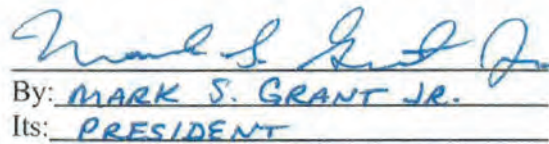 Mark S. Grant Jr.
By: MARK S. GRANT JR.
Its: PRESIDENT